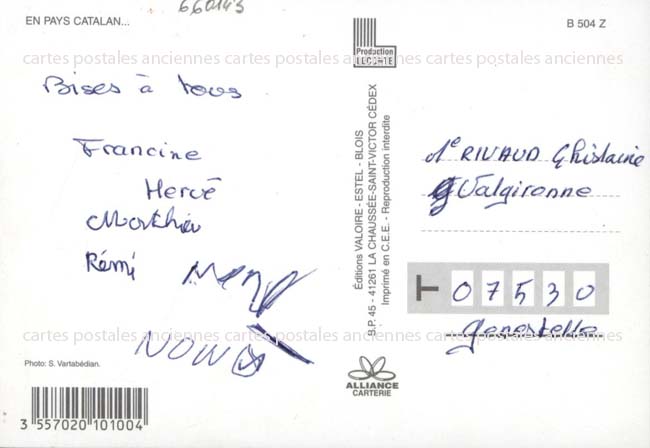 660143
EN PAYS CATALAN...
B 504 Z
Production
LECONTE
cartes postales anciennes cartes postales anciennes cartes postales anciennes
Bises à tous
Francine
Hervé
Matthieu
Rémi
Editions VALOIRE - ESTEL - BLOIS
B.P. 45 - 41261 LA CHAUSSÉE-SAINT-VICTOR CÉDEX
Imprimé en C.E.E. - Reproduction interdite
Me RIVAUD Ghislaine
Valgironne
07530
Genestelle
cartes postales anciennes cartes postales anciennes cartes postales anciennes
Photo: S. Vartabédian.
ALLIANCE
CARTERIE
3 557020 101004